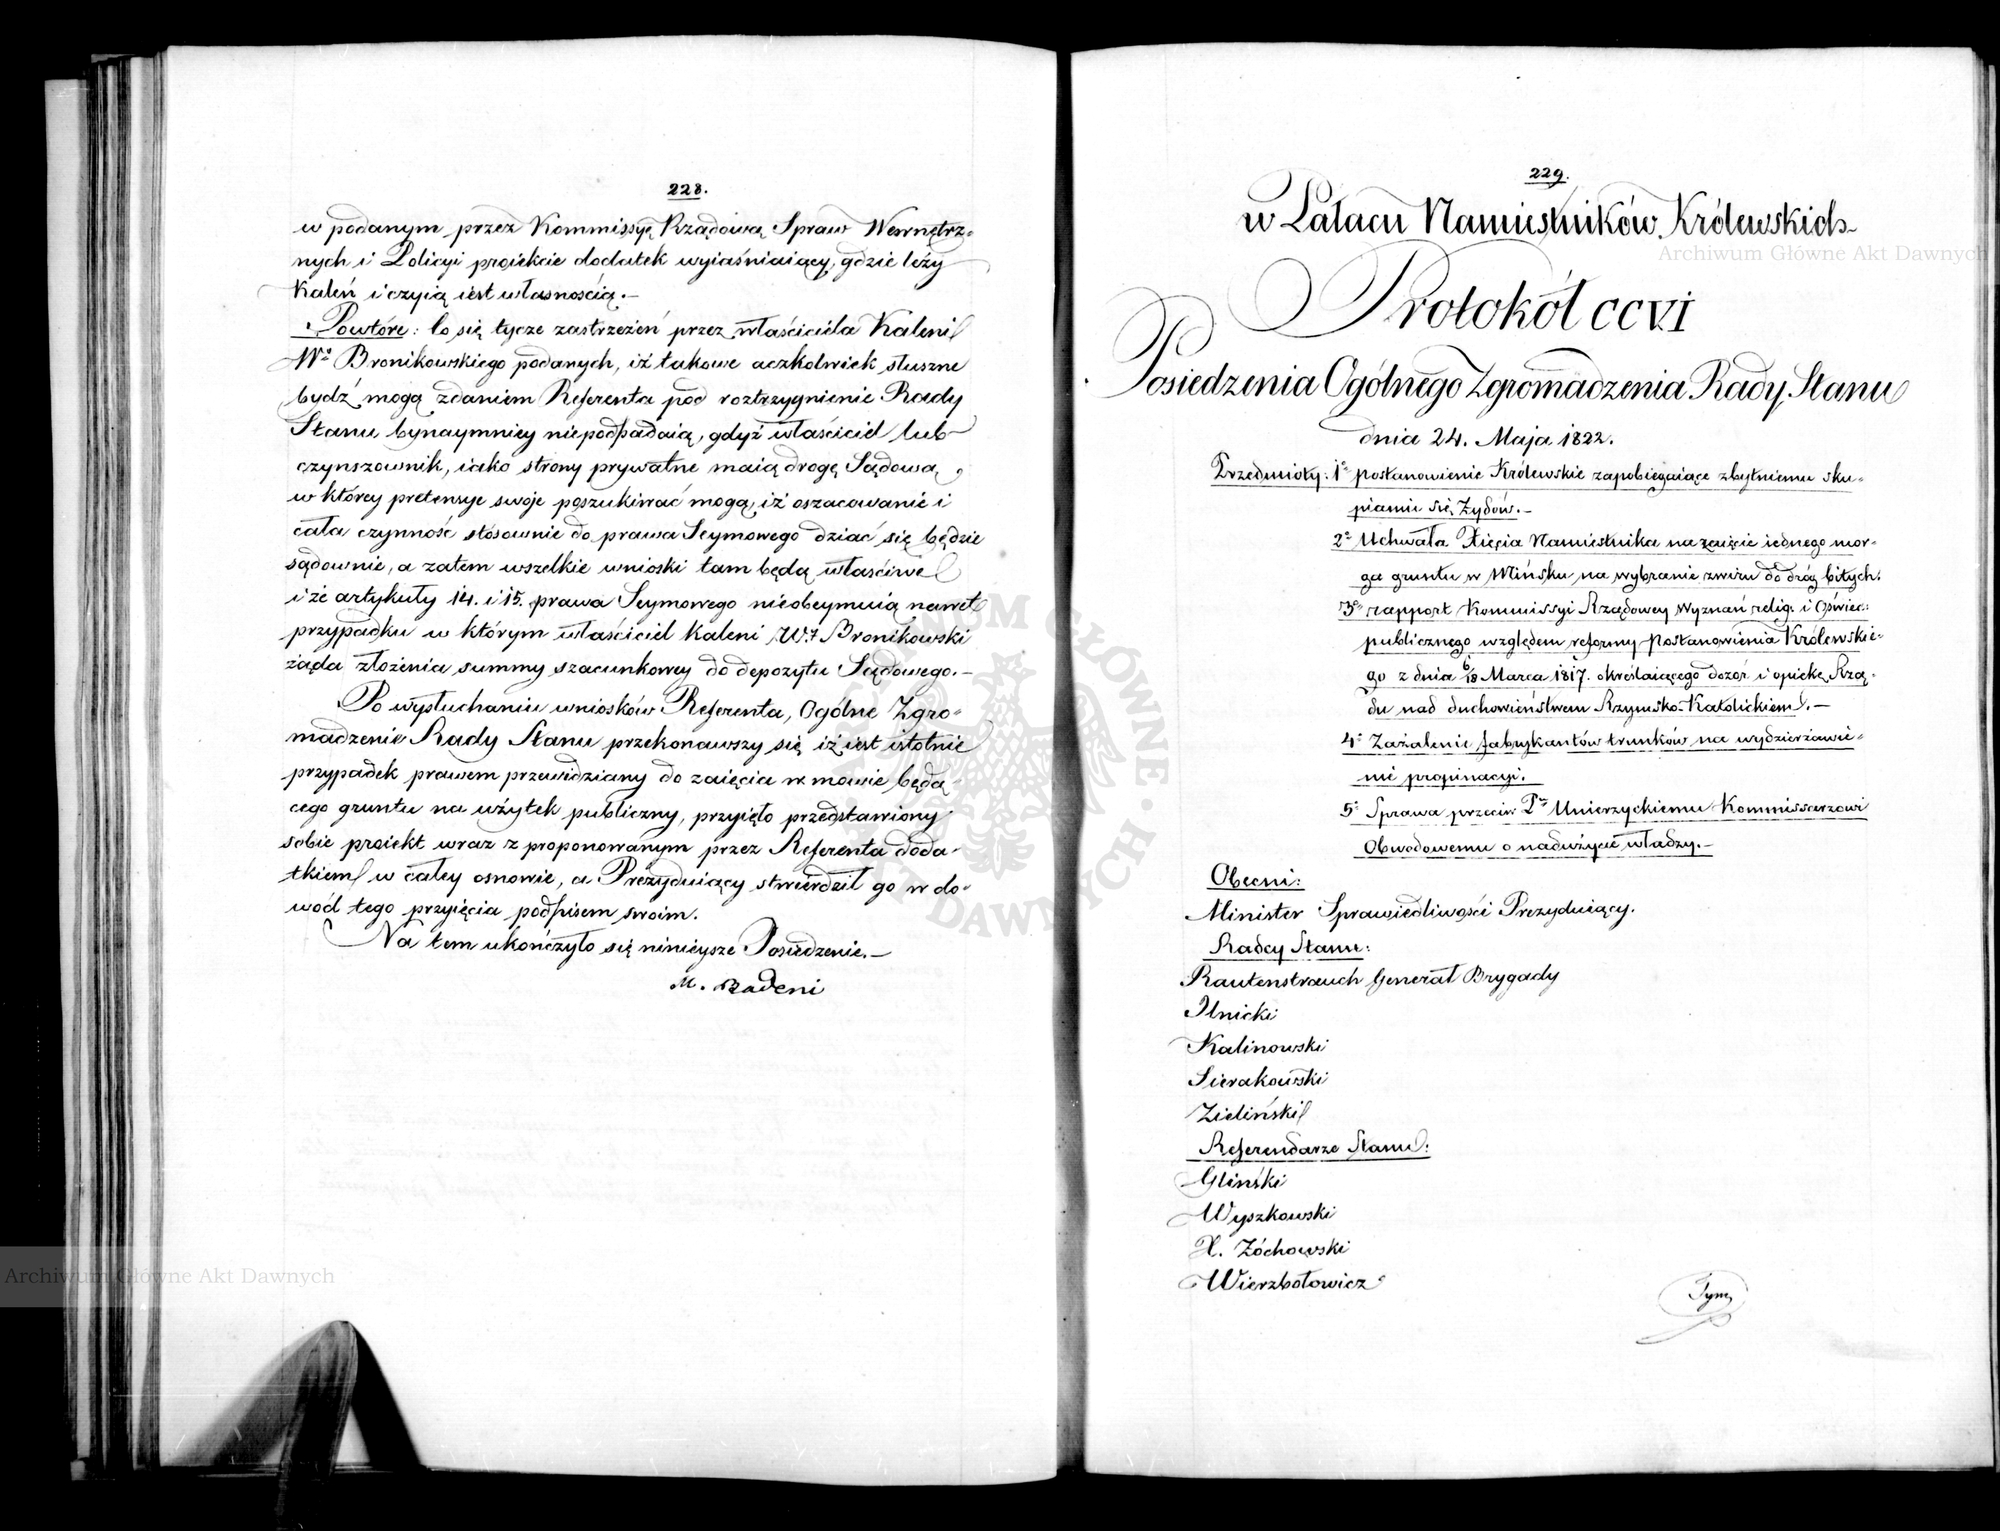 228.
w podanym przez Kommissyę Rządową Spraw Wewnętrz-
nych i Policyi proiekcie dodatek wyiaśniaiący, gdzie leży
Kaleń i czyią iest własnością.—
Powtóre: Co się tycze zastrzeżeń przez właściciela Kaleni
Wo Bronikowskiego podanych, iż takowe aczkolwiek słuszne
bydź mogą zdaniem Referenta pod roztrzygnienie Rady
Stanu bynaymniey niepodpadaią, gdyż właściciel lub
czynszownik, iako strony prywatne maią drogę Sądową,
w którey pretensye swoje poszukiwać mogą, iż oszacowanie i
cała czynność stósownie do prawa Seymowego dziać się będzie
sądownie, a zatem wszelkie wnioski tam będą właściwe
i że artykuły 14. i 15. prawa Seymowego nieobeymuią nawet
przypadku w którym właściciel Kaleni W. Bronikowski
żąda złożenia summy szacunkowey do depozytu Sądowego.—
Po wysłuchaniu wniosków Referenta, Ogólne Zgro-
madzenie Rady Stanu przekonawszy się iż iest istotnie
przypadek prawem przewidziany do zaięcia w mowie będą-
cego gruntu na użytek publiczny, przyięło przedstawiony
sobie proiekt wraz z proponowanym przez Referenta doda-
tkiem w całey osnowie, a Prezyduiący stwierdził go w do-
wód tego przyięcia podpisem swoim.
Na tem ukończyło się ninieysze Posiedzenie.—
M. Badeni
229.
w Pałacu Namiestników Królewskich
Protokół CCVI
Posiedzenia Ogólnego Zgromadzenia Rady Stanu
dnia 24. Maja 1822.
Przedmioty: 1o postanowienie Królewskie zapobiegaiące zbytniemu sku-
pianiu się Żydów.—
2o Uchwała Xięcia Namiestnika na zaięcie iednego mor-
ga gruntu w Mińsku na wybranie żwiru do dróg bitych.
3o rapport Kommissyi Rządowey Wyznań relig: i Oświec:
publicznego względem reformy Postanowienia Królewskie-
go z dnia 6/18 Marca 1817. określaiącego dozór i opiekę Rzą-
du nad duchowieństwem Rzymsko-Katolickiem.—
4o Zażalenie fabrykantów trunków na wydzierżawie-
nie propinacyi.
5o Sprawa przeciw Pu Unierzyckiemu Kommissarzowi
Obwodowemu o nadużycie władzy.—
Obecni:
Minister Sprawiedliwości Prezyduiący.
Radcy Stanu:
Rautenstrauch Generał Brygady
Ilnicki
Kalinowski
Sierakowski
Zieliński
Referendarze Stanu:
Gliński
Wyszkowski
X. Żóchowski
Wierzbołowicz
Tym
Archiwum Główne Akt Dawnych
Archiwum Główne Akt Dawnych